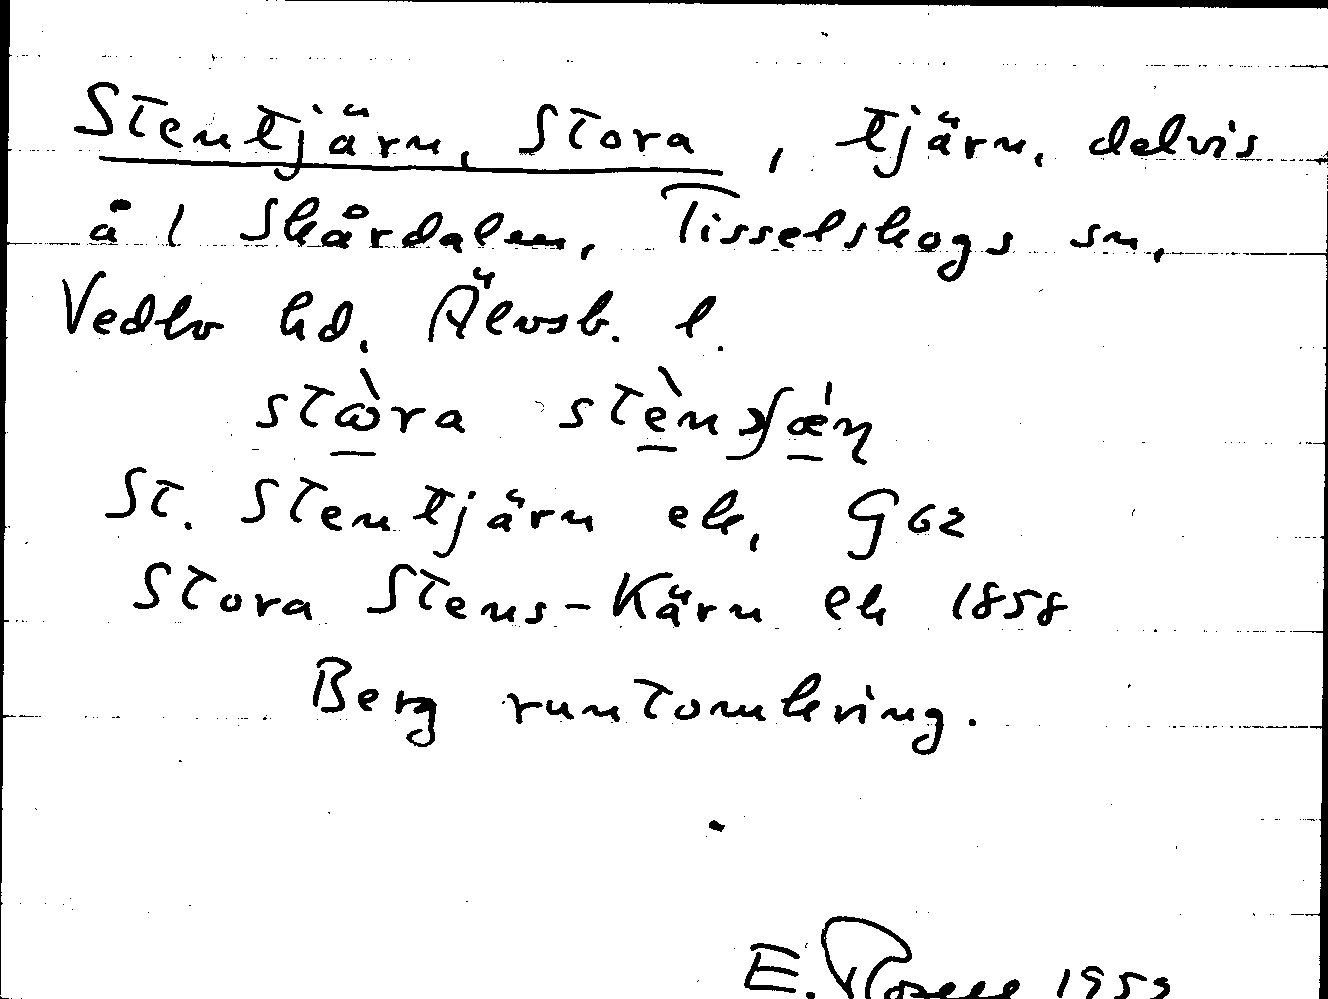 Stentjärn, Stora, tjärn, delvis
å 1 Skårdalen, Tisselskogs sn,
Vedbo hd, Älvsb. l.
stὼra stènʃæ̀ɳ
St. Stentjärn ek, G62
Stora Stens-Kärn Ek 1858
Berg runtomkring.
E. 1953